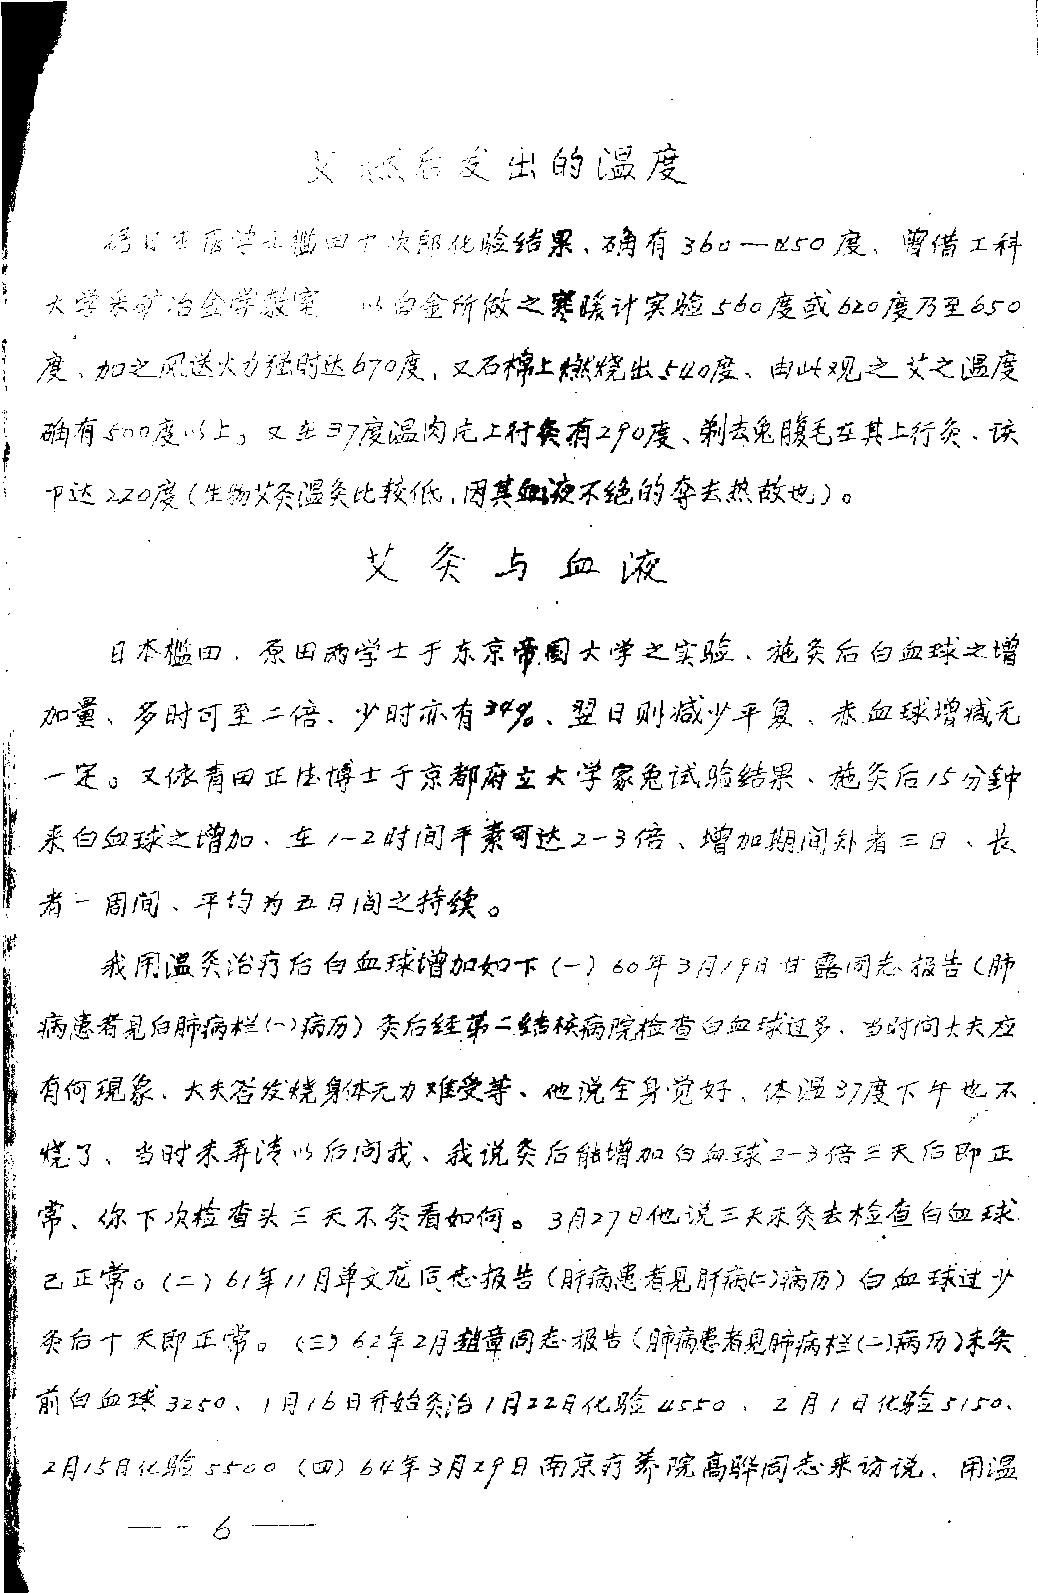 艾燃后发出的温度
日本医学士樒田十次郎化验结果、确有360—450度、曾借工科
大学采矿冶金学教室 以白金所做之寒暖计实验560度或620度乃至650
度、加之风送火力强时达670度，又石棉上燃烧出540度、由此观之艾之温度
确有500度以上，又在37度温肉片上行灸有290度、剃去兔腹毛在其上行灸、该
下达220度（生物艾灸温灸比较低，因其血液不绝的夺去热故也）。
艾灸与血液
日本樒田、原田两学士于东京帝国大学之实验、施灸后白血球之增
加量、多时可至二倍、少时亦有34%、翌日则减少平复、赤血球增减无
一定。又依青田正德博士于京都府立大学家兔试验结果、施灸后15分钟
来白血球之增加、在1-2时间平素可达2-3倍、增加期间外者三日、长
者一周间、平均为五日间之持续。
我用温灸治疗后白血球增加如下（一）60年3月19日甘露同志报告（肺
病患者见白肺病栏（一）病历）灸后经第二结核病院检查白血球过多、当时问大夫应
有何現象、大夫答发烧身体无力难受等、他说全身觉好、体温37度下午也不
烧了、当时未弄清以后问我、我说灸后能增加白血球2-3倍三天后即正
常、你下次检查头三天不灸看如何。3月27日他说三天未灸去检查白血球
已正常。（二）61年11月单文龙同志报告（肝病患者见肝病（二）病历）白血球过少
灸后十天即正常。（三）62年2月赵章同志报告（肺病患者见肺病栏（二）病历）未灸
前白血球3250、1月16日开始灸治1月22日化验4550、2月1日化验5150、
2月15日化验5500（四）64年3月29日南京疗养院高骅同志来访说、用温
—— 6 ——